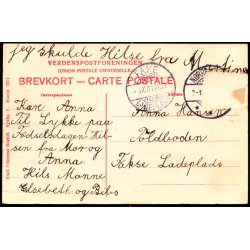 jeg skulde Hilse fra Martine
VERDENSPOSTFORENINGEN
(UNION POSTALE UNIVERSELLE)
BREVKORT — CARTE POSTALE
Korrespondance
Kære Anna
Til Lykke paa
Fødselsdagen Hil-
sen fra Mor og
Anna
Hils Manne
Elsebeth og
Anna Hansen
Toldboden
Faxe Ladeplads